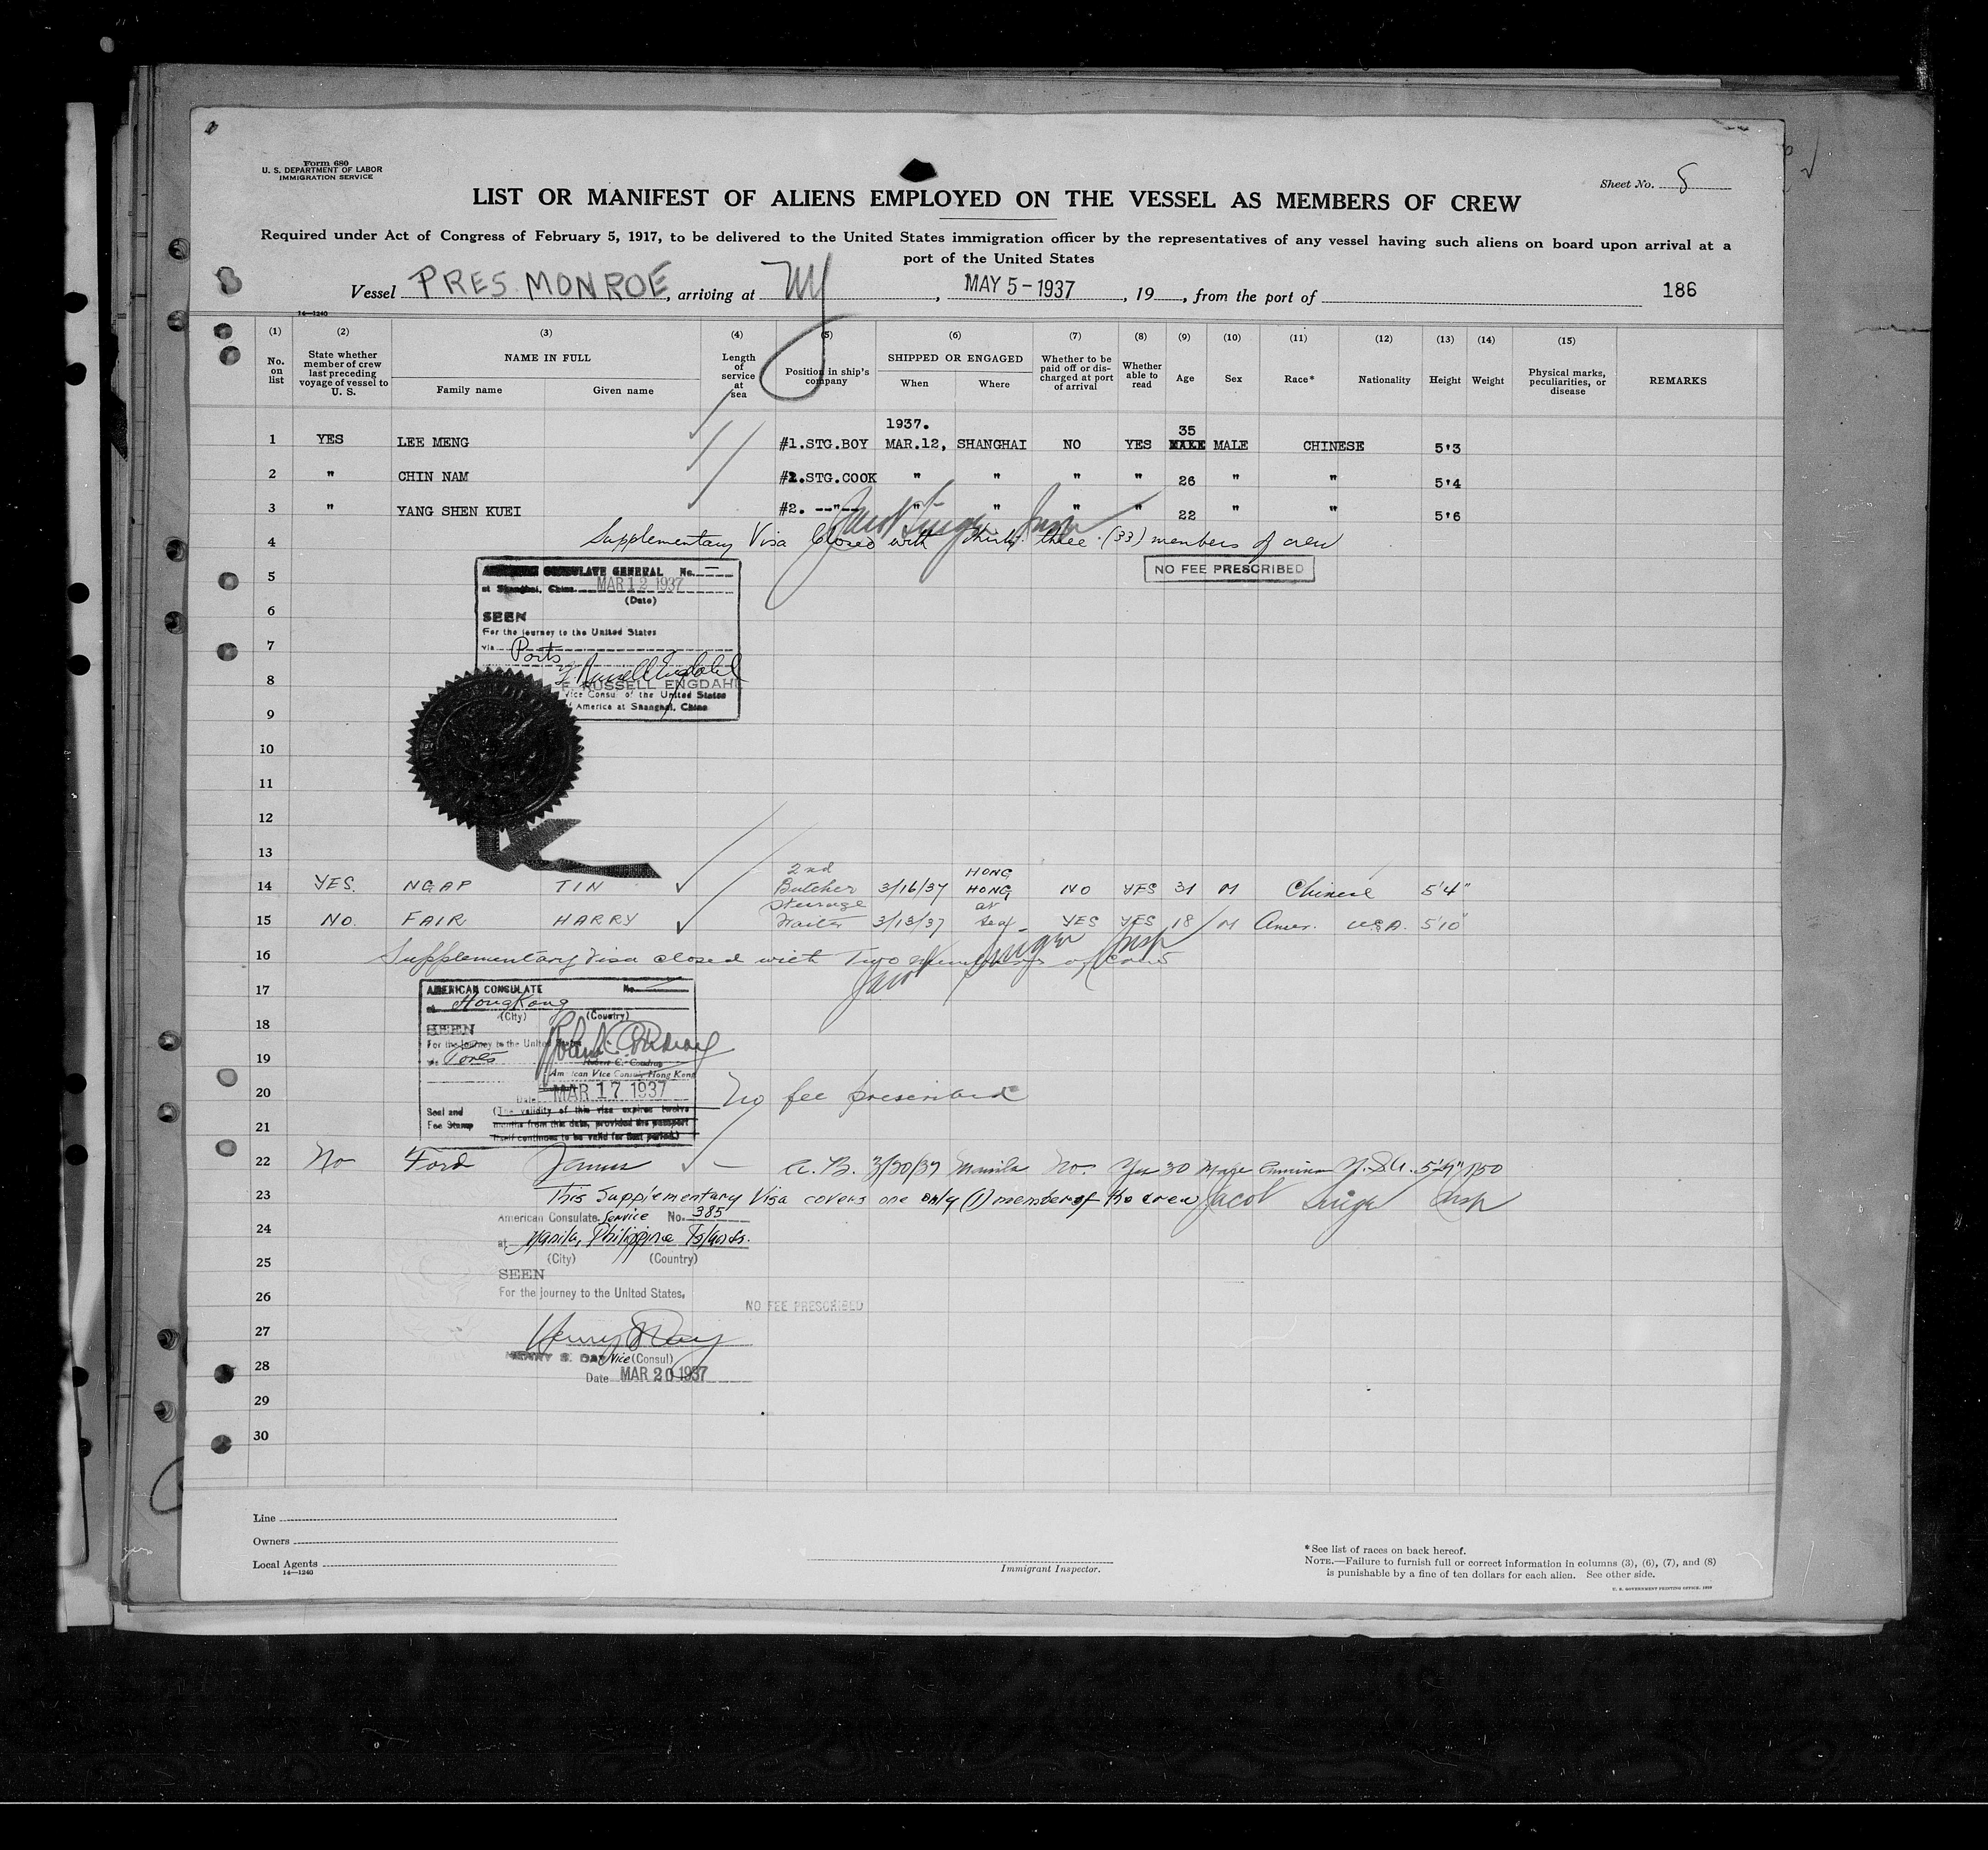 Form 680
U. S. DEPARTMENT OF LABOR
IMMIGRATION SERVICE
Sheet No. 8
LIST OR MANIFEST OF ALIENS EMPLOYED ON THE VESSEL AS MEMBERS OF CREW
Required under Act of Congress of February 5, 1917, to be delivered to the United States immigration officer by the representatives of any vessel having such aliens on board upon arrival at a
port of the United States
Vessel PRES. MONROE, arriving at NY, MAY 5-1937, 19, from the port of 186
14—1240
(1) (2) (3) (4) (5) (6) (7) (8) (9) (10) (11) (12) (13) (14) (15)
No. on list
State whether member of crew last preceding voyage of vessel to U. S.
NAME IN FULL
Family name Given name
Length of service at sea
Position in ship's company
SHIPPED OR ENGAGED
When Where
Whether to be paid off or discharged at port of arrival
Whether able to read
Age Sex Race* Nationality Height Weight
Physical marks, peculiarities, or disease
REMARKS
1937. 35
1 YES LEE MENG #1.STG.BOY MAR.12, SHANGHAI NO YES MALE CHINESE 5'3
2 " CHIN NAM #1.STG.COOK " " " " 26 " " 5'4
3 " YANG SHEN KUEI #2. --"-- " " " " 22 " " 5'6
Jacob Singer Insp
4 Supplementary Visa Closed with Thirty three (33) members of crew
NO FEE PRESCRIBED
5 CONSULATE GENERAL No. —
at Shanghai, China MAR 12 1937
(Date)
6 SEEN
For the journey to the United States
7 via Ports
8 F. Russell Engdahl
F. RUSSELL ENGDAHL
Vice Consul of the United States
9 of America at Shanghai, China
10
11
12
13
14 YES. NGAP TIN 2nd Butcher 3/16/37 HONG HONG NO YES 31 M Chinese 5'4"
15 NO. FAIR HARRY Steerage Waiter 3/13/37 at Sea YES YES 18 M Amer. U.S.A. 5'10"
16 Supplementary Visa closed with Two members of crew
Jacob Singer Insp
17 AMERICAN CONSULATE No.
at HongKong
(City) (Country)
18 SEEN
For the journey to the United States
19 via Ports
American Vice Consul, Hong Kong
20 Date MAR 17 1937 No fee prescribed
Seal and Fee Stamp
(The validity of this visa expires twelve
21 months from this date, provided the passport
itself continues to be valid for that period.)
22 No Ford James A. B. 3/20/37 Manila No. Yes 30 Male American U.S.A. 5'9" 150
23 This Supplementary Visa covers one only (1) member of the crew Jacob Singer Insp
24 American Consulate Service No. 385
at Manila, Philippine Islands.
25 (City) (Country)
SEEN
26 For the journey to the United States.
NO FEE PRESCRIBED
27 Henry S Day
HENRY S. DAY Vice (Consul)
28 Date MAR 20 1937
29
30
Line
Owners
Local Agents
14—1240
Immigrant Inspector.
* See list of races on back hereof.
NOTE.—Failure to furnish full or correct information in columns (3), (6), (7), and (8)
is punishable by a fine of ten dollars for each alien. See other side.